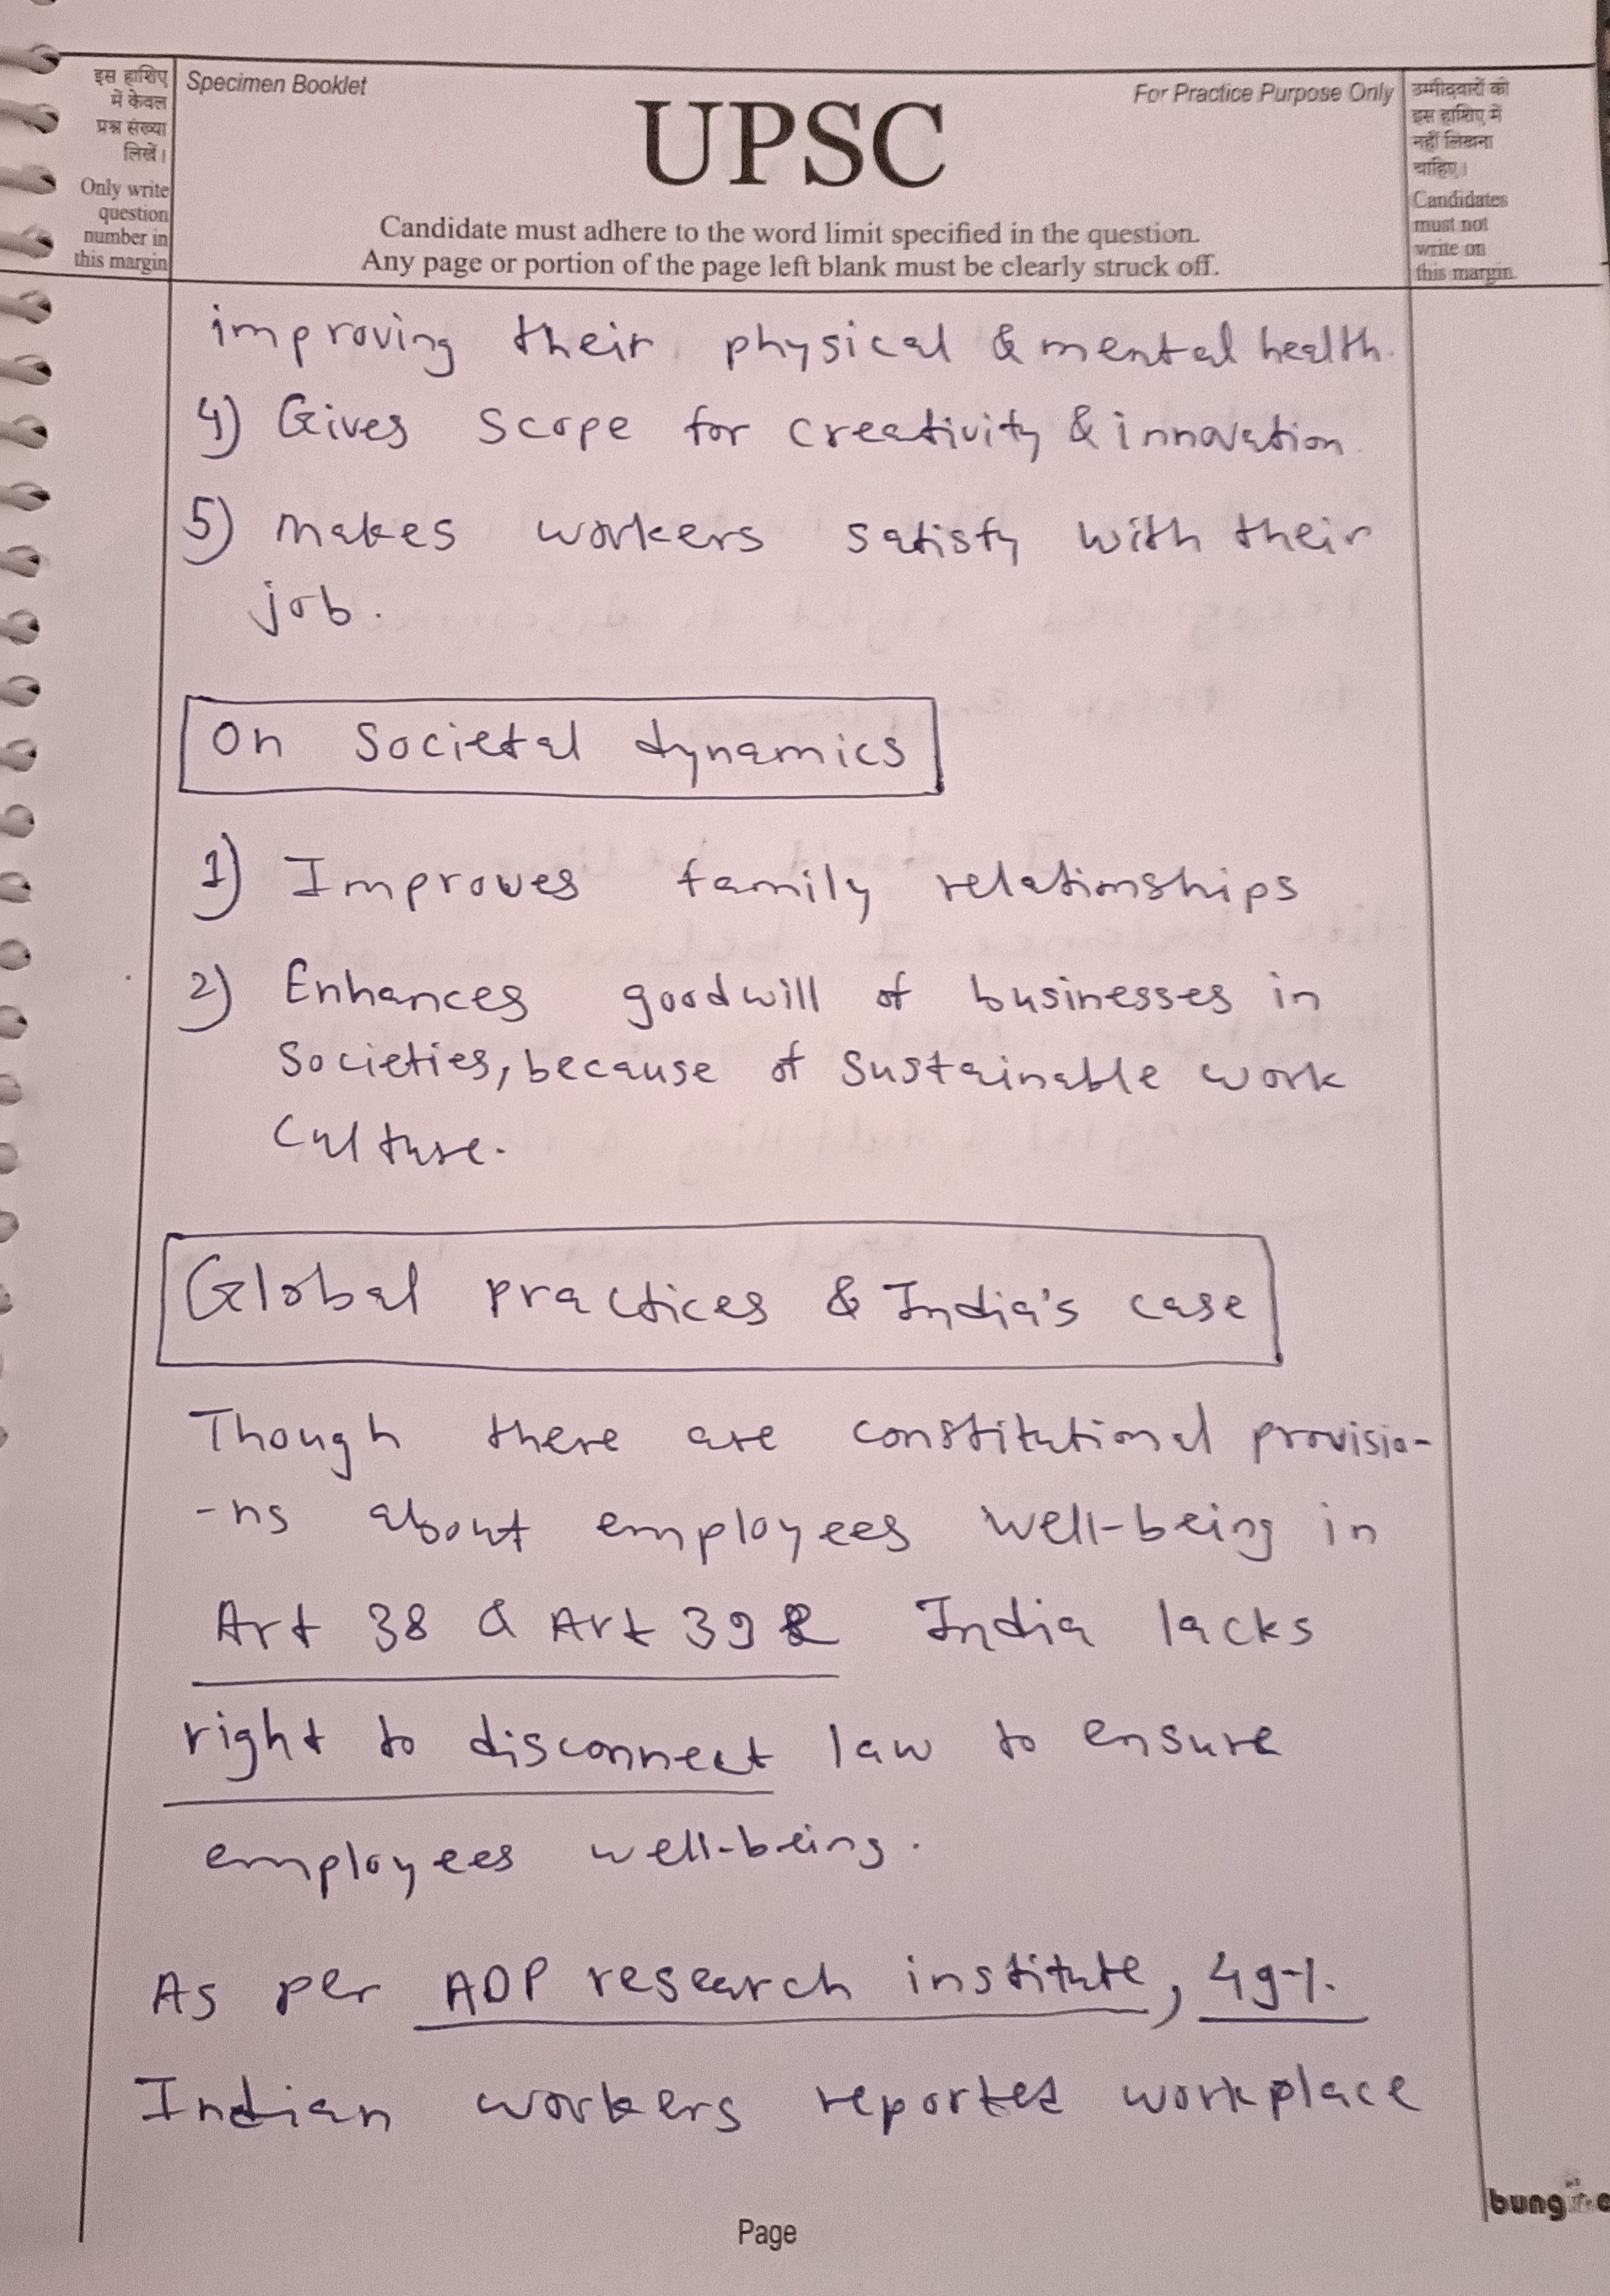 इस हाशिए
में केवल
प्रश्न संख्या
लिखें।
Only write
question
number in
this margin
Specimen Booklet
For Practice Purpose Only
UPSC
Candidate must adhere to the word limit specified in the question.
Any page or portion of the page left blank must be clearly struck off.
उम्मीदवारों को
इस हाशिए में
नहीं लिखना
चाहिए।
Candidates
must not
write on
this margin.
improving their physical & mental health.
4) Gives scope for creativity & innovation.
5) Makes workers satisfy with their
job.
On Societal dynamics
1) Improves family relationships
2) Enhances goodwill of businesses in
Societies, because of sustainable work
culture.
Global practices & India's case
Though there are constitutional provisio-
-ns about employees well-being in
Art 38 & Art 39 India lacks
right to disconnect law to ensure
employees well-being.
As per ADP research institute, 49%
Indian workers reported workplace
Page